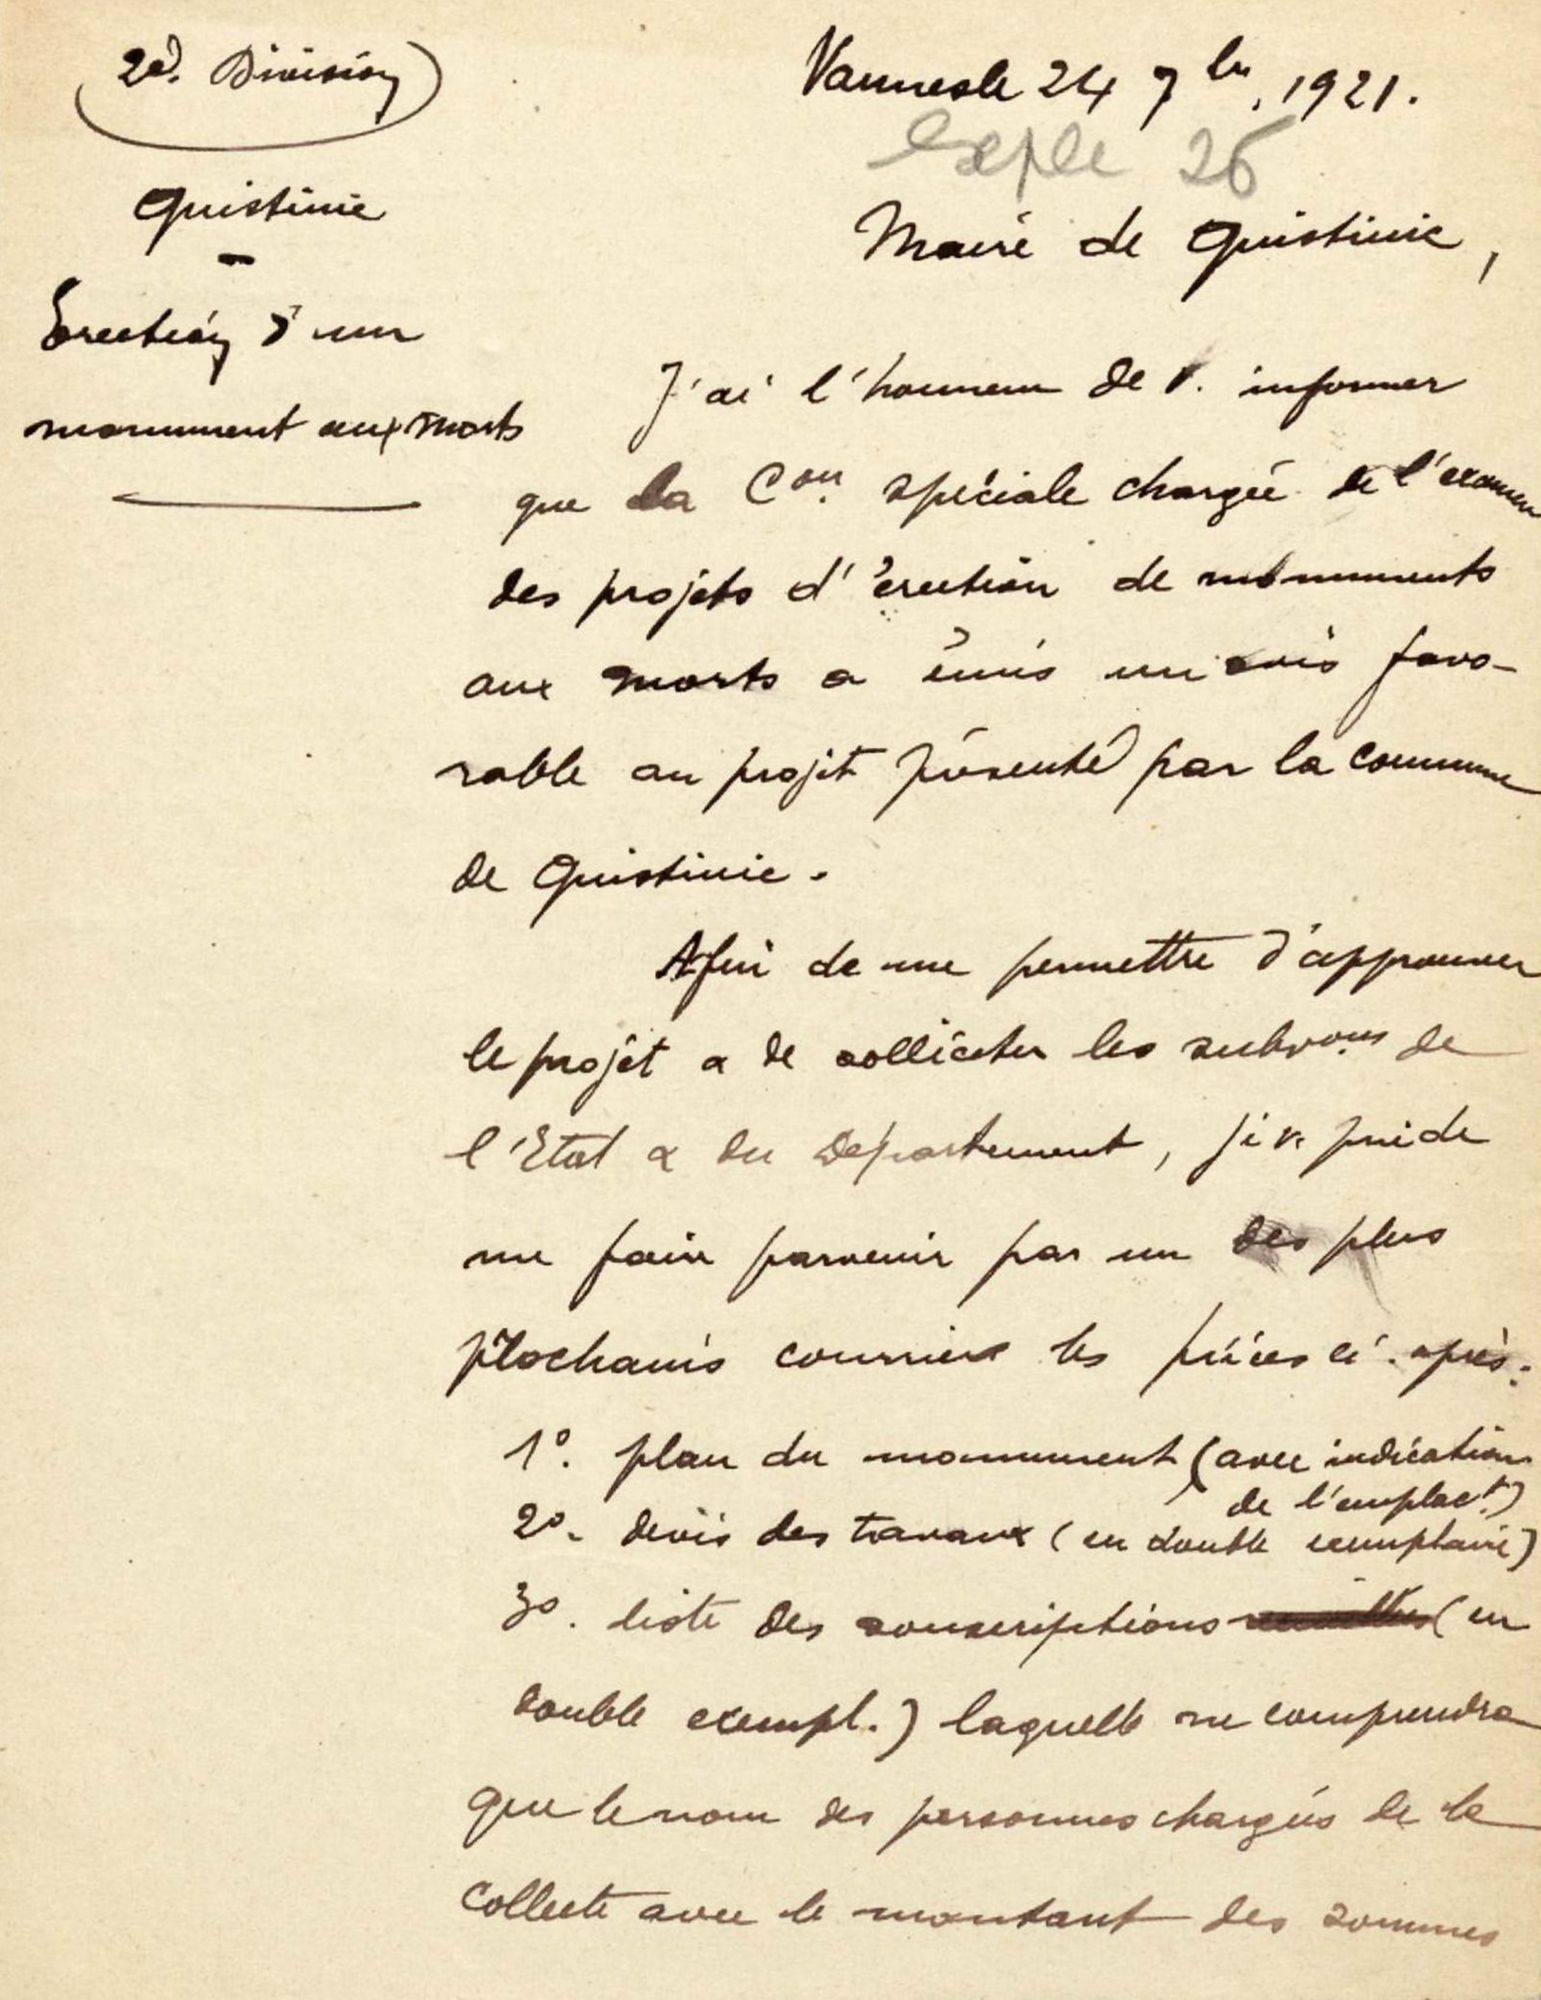 2e. Division
Vannes le 24 7bre, 1921.
Exple 26
Quistinic
Maire de Quistinic,
Erection d'un
monument aux morts
J'ai l'honneur de v. informer
que la Con spéciale chargée de l'examen
des projets d'érection de monuments
aux morts a émis un avis favo-
rable au projet présenté par la commune
de Quistinic.
Afin de me permettre d'approuver
le projet & de solliciter les subvons de
l'Etat & du Département, je v. prie de
me faire parvenir par un des plus
prochains courriers les pièces ci-après:
1º. plan du monument (avec indication
de l'emplact.)
2º. devis des travaux (en double exemplaire)
3º. liste des souscriptions (en
double exempl.) laquelle ne comprendra
que le nom des personnes chargées de la
collecte avec le montant des sommes